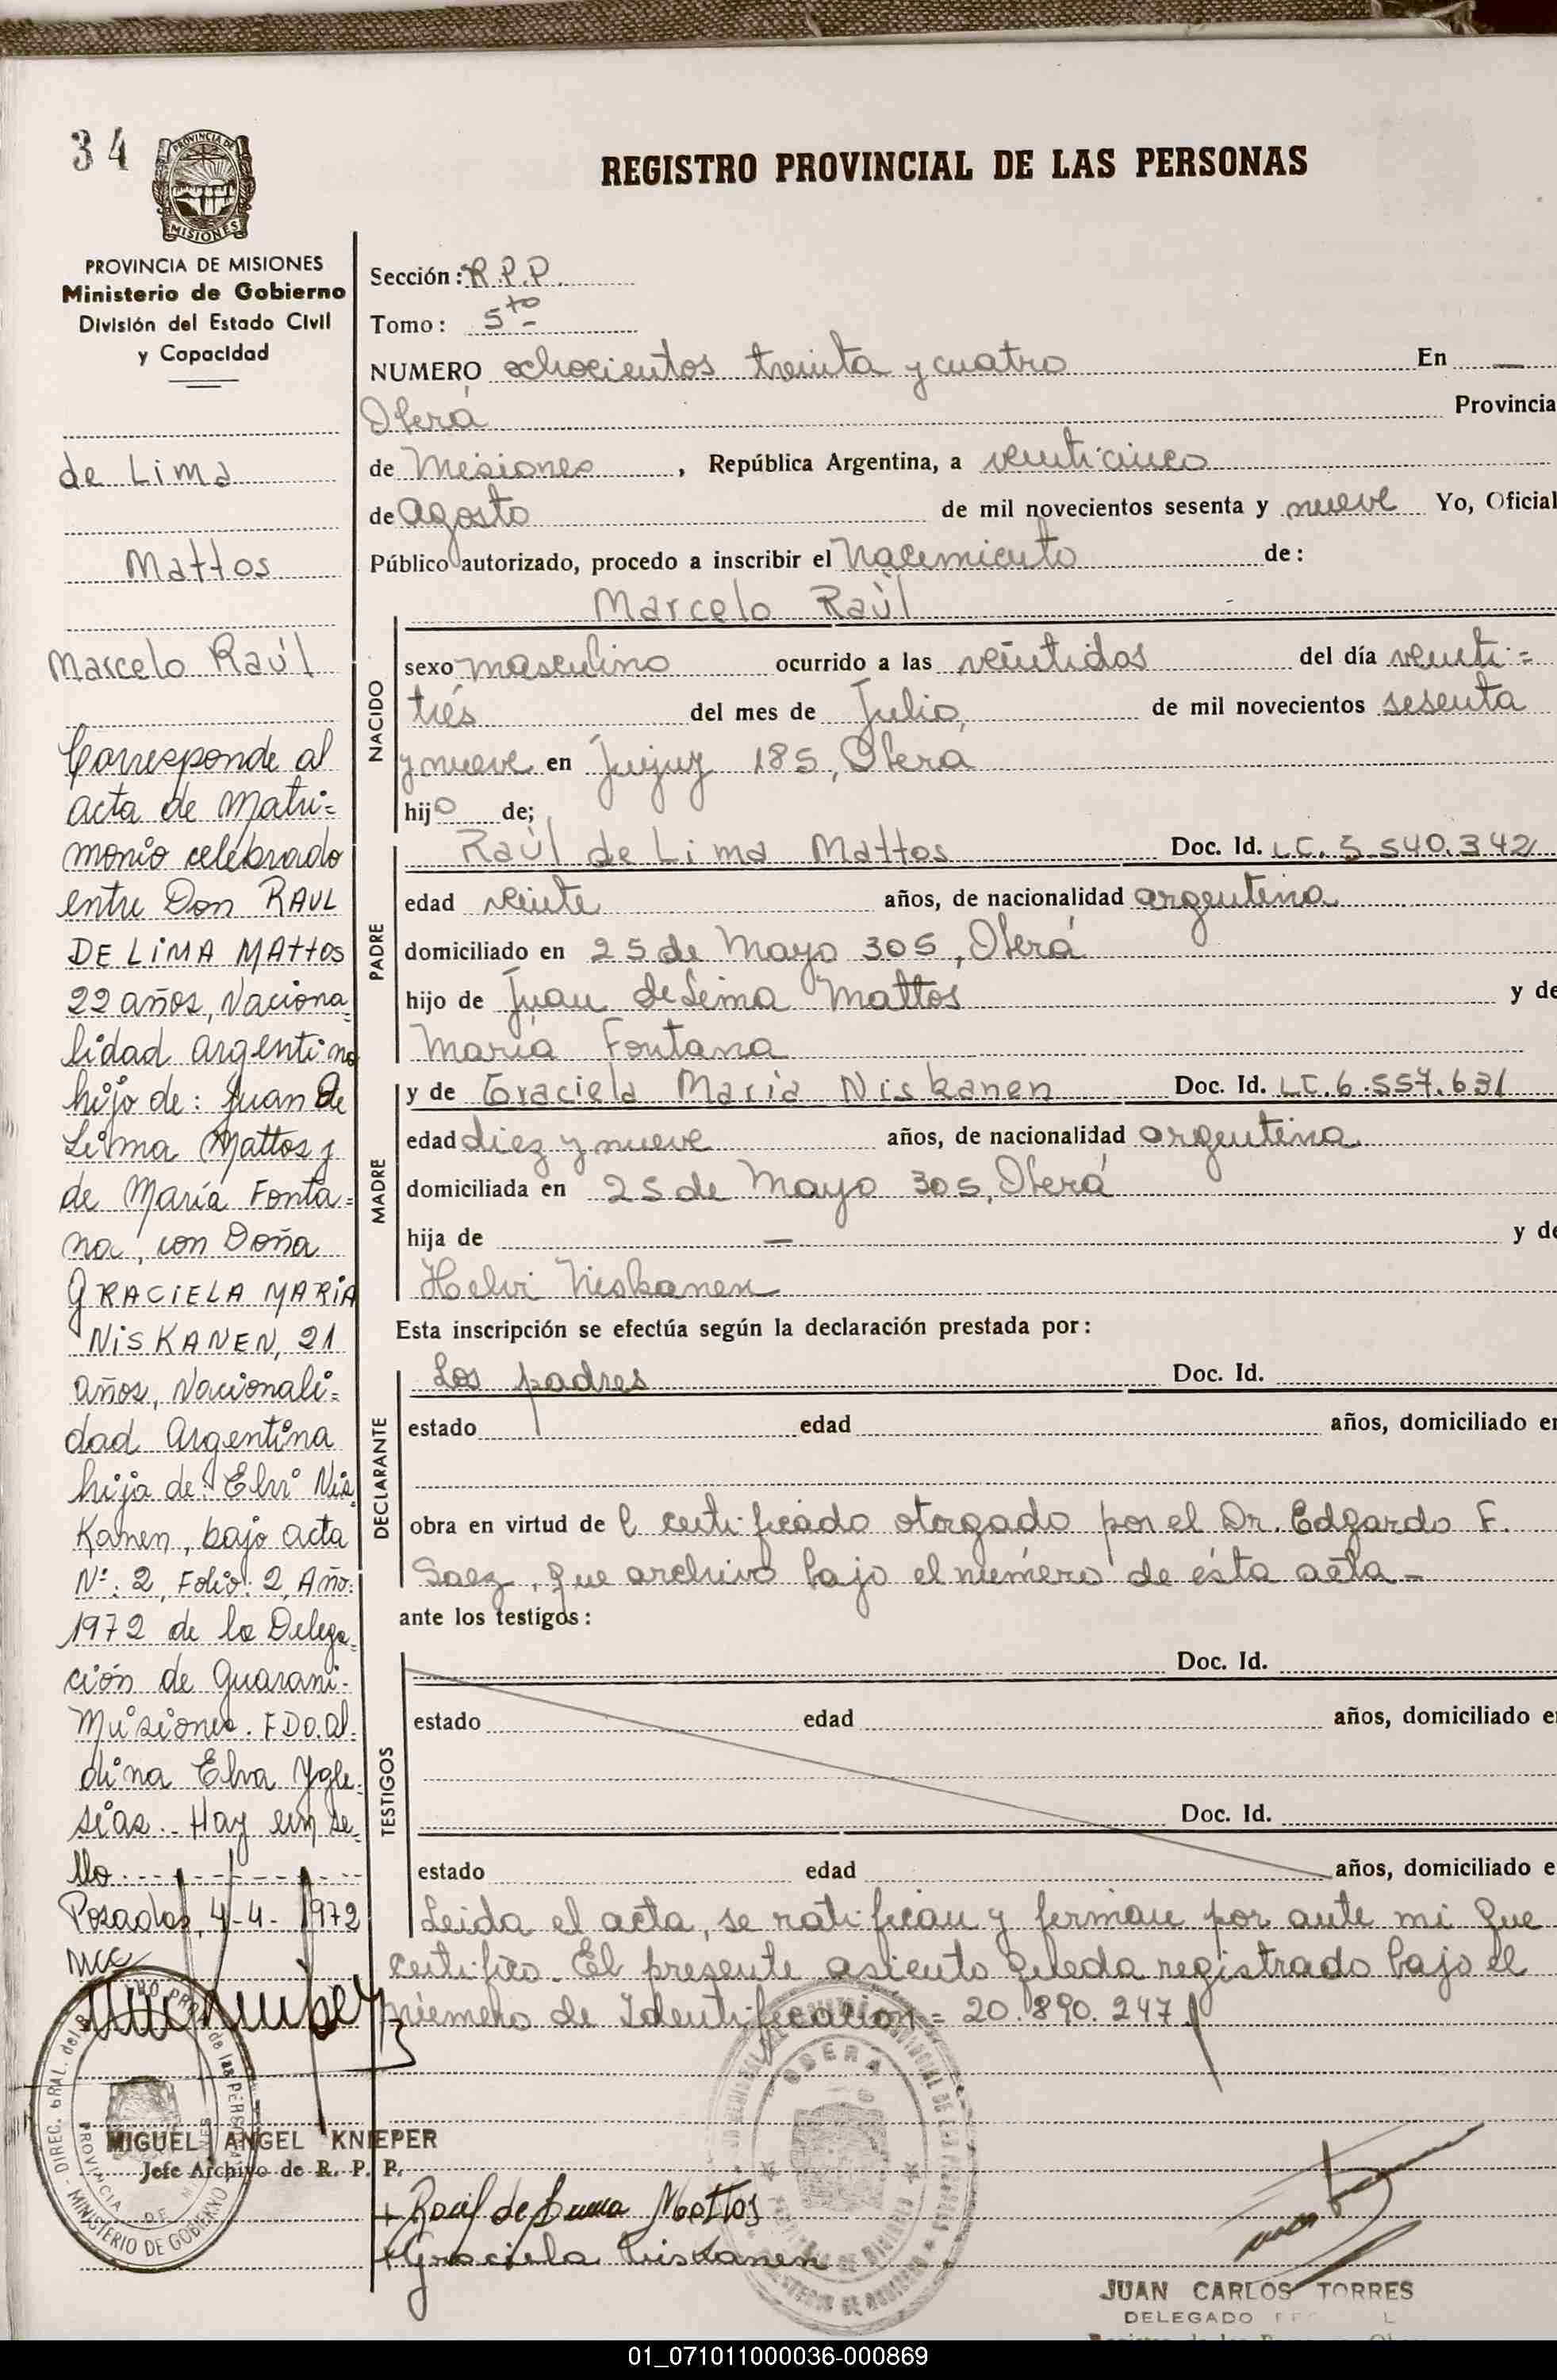 34
PROVINCIA DE
MISIONES
REGISTRO PROVINCIAL DE LAS PERSONAS
PROVINCIA DE MISIONES
Ministerio de Gobierno
División del Estado Civil
y Capacidad
de Lima
Mattos
Marcelo Raúl
Corresponde al
acta de Matri=
monio celebrado
entre Don RAUL
DE LIMA MAttos
22 años, Naciona
lidad argentina
hijo de: Juan De
Lima Mattos y
de María Fonta=
na, con Doña
GRACIELA MARIA
NISKANEN, 21
años, Nacionali=
dad Argentina
hija de: Elvi Nis
Kanen, bajo acta
Nº: 2, Folio: 2, Año:
1972 de la Delega=
ción de Guarani-
Misiones. FDO. Al-
dina Elva Ygle-
sias.- Hay un se-
llo.---------
Posadas, 4-4-1972
MCC
MIGUEL ANGEL KNIEPER
Jefe Archivo de R. P. P.
DIREC. GRAL. del de las PERS
PROVINCIA DE
MINISTERIO DE GOBIERNO
Sección: R.P.P.
Tomo: 5to
NUMERO ochocientos treinta y cuatro En —
Oberá Provincia
de Misiones, República Argentina, a veinticinco
de Agosto de mil novecientos sesenta y nueve Yo, Oficial
Público autorizado, procedo a inscribir el Nacimiento de:
Marcelo Raùl
NACIDO
sexo masculino ocurrido a las veintidos del día veinti=
trés del mes de Julio, de mil novecientos sesenta
y nueve en Jujuy 185, Oberá
hijo de;
PADRE
Raùl de Lima Mattos Doc. Id. LC. 5.540.342
edad veinte años, de nacionalidad argentina
domiciliado en 25 de Mayo 305, Oberá
hijo de Juan de Leima Mattos y de
María Fontana
MADRE
y de Graciela Maria Niskanen Doc. Id. LC. 6.557.631
edad diez y nueve años, de nacionalidad argentina
domiciliada en 25 de Mayo 305, Oberá
hija de — y de
Helvi Niskanen
Esta inscripción se efectúa según la declaración prestada por:
DECLARANTE
Los padres Doc. Id.
estado edad años, domiciliado en
obra en virtud de l certificado otorgado por el Dr. Edgardo F.
Saez, que archivo bajo el número de ésta acta -
ante los testigos:
TESTIGOS
Doc. Id.
estado edad años, domiciliado e
Doc. Id.
estado edad años, domiciliado e
Leida el acta, se ratifican y firman por ante mi que
certifico. El presente asiento queda registrado bajo el
número de Identificacion = 20.890.247
OBERA
+ Raúl de Lima Mattos
+ Graciela Niskanen
JUAN CARLOS TORRES
DELEGADO
01_071011000036-000869